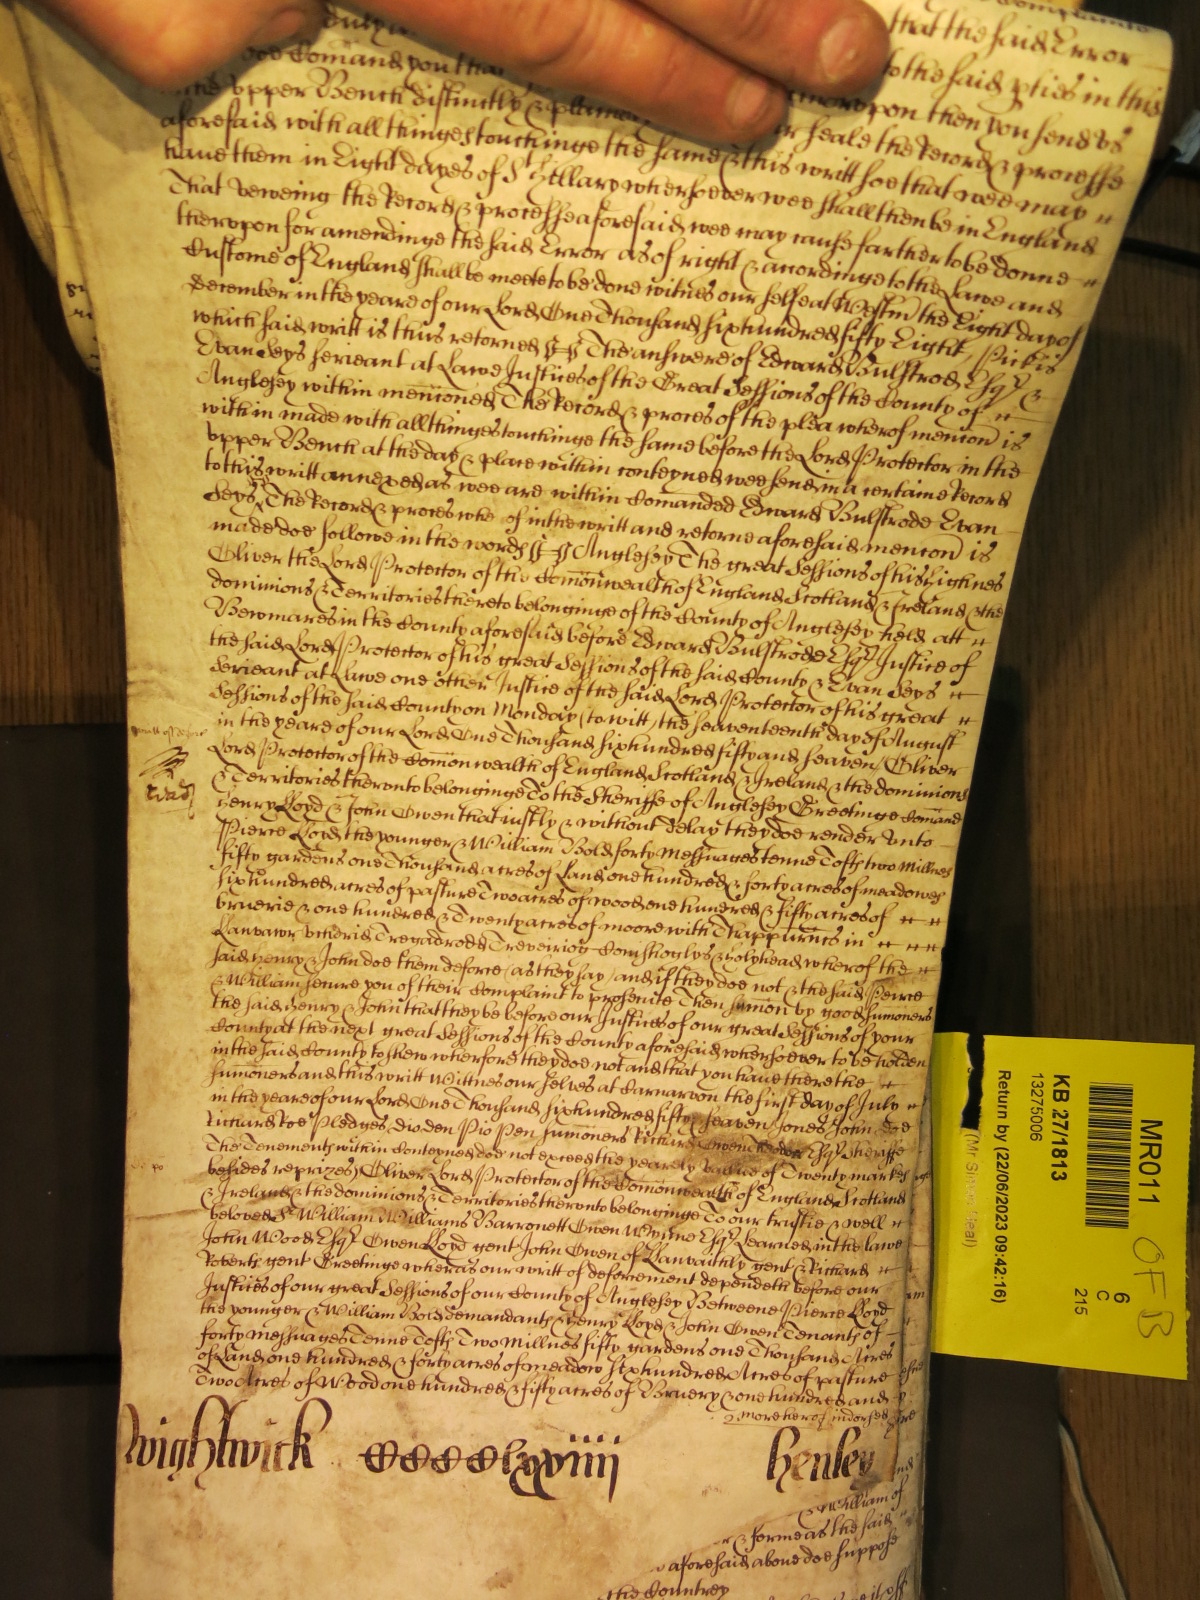 Complainte
that the said Error
doe Comand you that to the said pties in this
the upper Bench distinctly & plainly thereupon then you send us
aforesaid with all thinges touchinge the same & this writt soe that wee may "
have them in Eight dayes of St Hillary whersoever wee shall then be in England
That veweing the Record & processe aforesaid wee may cause farther to be donne "
therupon for amendinge the said Error as of right & accordinge to the Lawe and
Custome of England shall be meete to be done witnes our selfe at Westm the Eight day of
December in the yeare of our Lord One Thousand sixhundred fifty Eight,
which said writt is thus returned ss The answere of Edward Bulstrod Esqr &
Evan Seys serieant at Lawe Justices of the Great Sessions of the County of "
Anglesey within mencioned The Record & proces of the plea wherof mencon is
within made with all thinges touchinge the same before the Lord Protector in the
upper Bench at the day & place within conteyned wee send in a certaine Record
to this writt annexed as wee are within Comanded Edward Bulstrode Evan
Seys The Record & proces wherof in the writt and returne aforesaid mencon is
made doe followe in these words ss Anglesey The great Sessions of his Highnes
Oliver the Lord Protector of the Comonwealth of England Scotland & Ireland & the
dominions & Territories thereto belonginge of the County of Anglesey held att "
Bewmares in the County aforesaid before Edward Bulstrode Esqr Justice of
the said Lord Protector of his great Sessions of the said County & Evan Seys "
Serieant at Lawe one other Justice of the said Lord Protector of his great "
Sessions of the said County on Monday (to witt) the seaventeenth day of August
in the yeare of our Lord One Thousand sixhundred fifty and seaven Oliver
Lord Protector of the Comonwealth of England Scotland & Ireland & the dominions
& Territories therunto belonginge To the Sheriffe of Anglesey Greetinge Comand
Henry Lloyd & John Owen that iustly & without delay they doe render unto
Pierce Lloyd the younger & William Bold forty Messuages tenne Tofts two Millnes
fifty gardens one Thousand acres of Land one hundred & forty acres of meadowes
sixhundred acres of pasture Two acres of wood one hundred & fifty acres of " "
bruerie & one hundred & Twenty acres of moore with Thappurtnces in " " "
Lanvawr Tregadrod Treveiriog & Holyhead wherof the "
said Henry & John doe them deforce (as they say) and if they doe not & the said Peirce
& William secure you of their Complaint to prosecute Then sumon by good sumoners
the said Henry & John that they be before our Justices of our great Sessions of your
County at the next great Sessions of the County aforesaid whersoever to be holden
in the said County to shew wherfore they doe not and that you have there the "
sumoners and this writt Wittnes our selves at Carnarvon the first day of July "
in the yeare of our Lord One Thousand sixhundred fifty seaven Jones John Doe
Richard Roe Pledges. Sumoners Richard Owen Esqr Sheriffe
The Tenements within Conteyned doe not exceed the yearely value of Twenty markes
besides reprizes) Oliver Lord Protector of the Comonwealth of England Scotland
& Ireland & the dominions & Territories therunto belonginge To our trustie & well "
beloved Sr William Williams Barronett Owen Wynne Esqr Learned in the lawe
John Wood Esqr Owen Lloyd gent John Owen of gent & Richard "
Roberts gent Greetinge wheras our writt of deforcement dependeth before our
Justices of our great Sessions of our County of Anglesey Betweene Pierce Lloyd
the younger & William Bold demandants & Henry Lloyd & John Owen Tenants of
forty messuages Tenne Tofts Two Millnes fifty gardens one Thousand Acres
of Land one hundred & forty acres of meadow Sixhundred Acres of pasture
Two Acres of Wood one hundred & fifty acres of Bruery & one hundred and
more hereof indorsed
Wightwick CCCClxxviiii Henley
& William of
& forme as the said
aforesaid above doe suppose
the Countrey
MR011
6
C
215
OFB
KB 27/1813
13275006
Return by (22/06/2023 09:42:16)